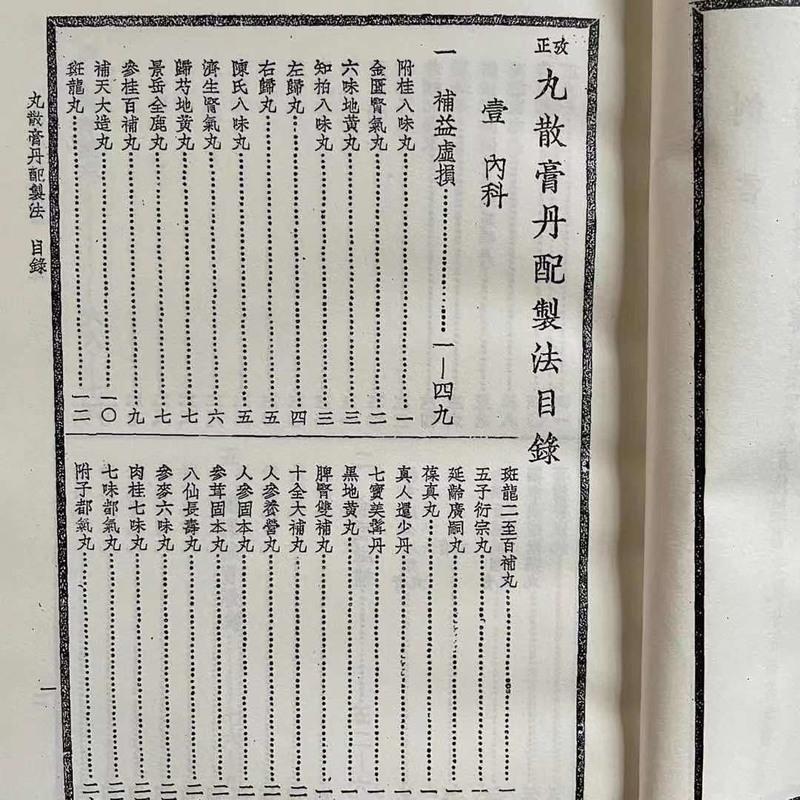 攷正 丸散膏丹配製法目錄
壹 內科
一 補益虛損……一—四九
附桂八味丸……一
金匱腎氣丸……二
六味地黃丸……三
知柏八味丸……三
左歸丸……四
右歸丸……五
陳氏八味丸……五
濟生腎氣丸……六
歸芍地黃丸……七
景岳全鹿丸……七
參桂百補丸……九
補天大造丸……一〇
斑龍丸……一二
斑龍二至百補丸……
五子衍宗丸……
延齡廣嗣丸……
葆真丸……
真人還少丹……
七寶美髯丹……
黑地黃丸……
脾腎雙補丸……
十全大補丸……
人參養營丸……
人參固本丸……
參茸固本丸……
八仙長壽丸……
參麥六味丸……
肉桂七味丸……
七味都氣丸……
附子都氣丸……
丸散膏丹配製法 目錄
一